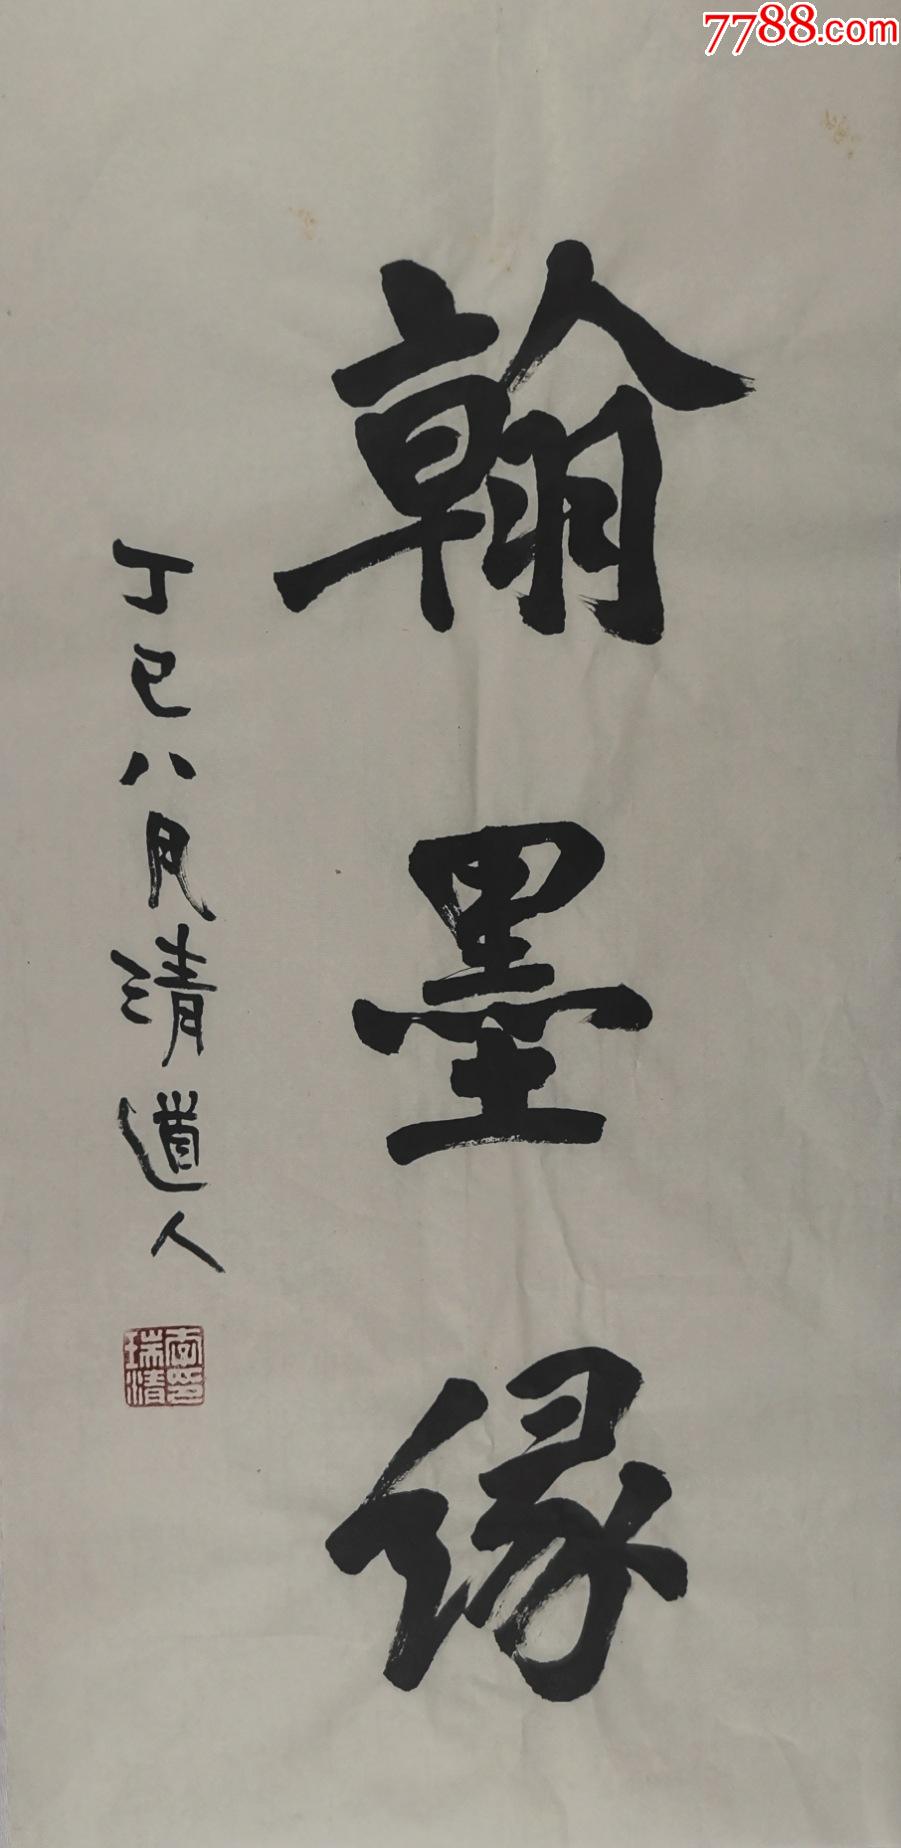 7788.com
翰墨缘
丁巳八月清道人
李印
瑞清